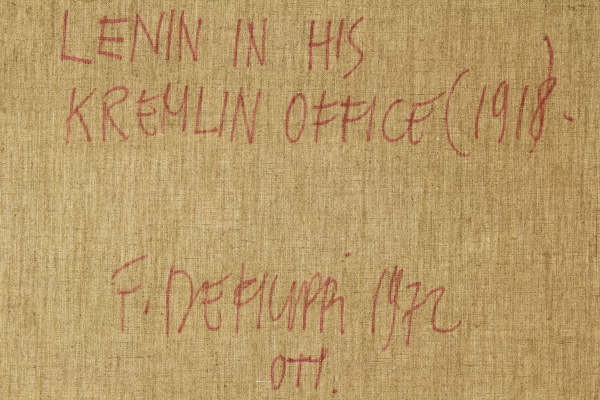 LENIN IN HIS
KREMLIN OFFICE (1918).
F. DE FILIPPI 1972
OTT.